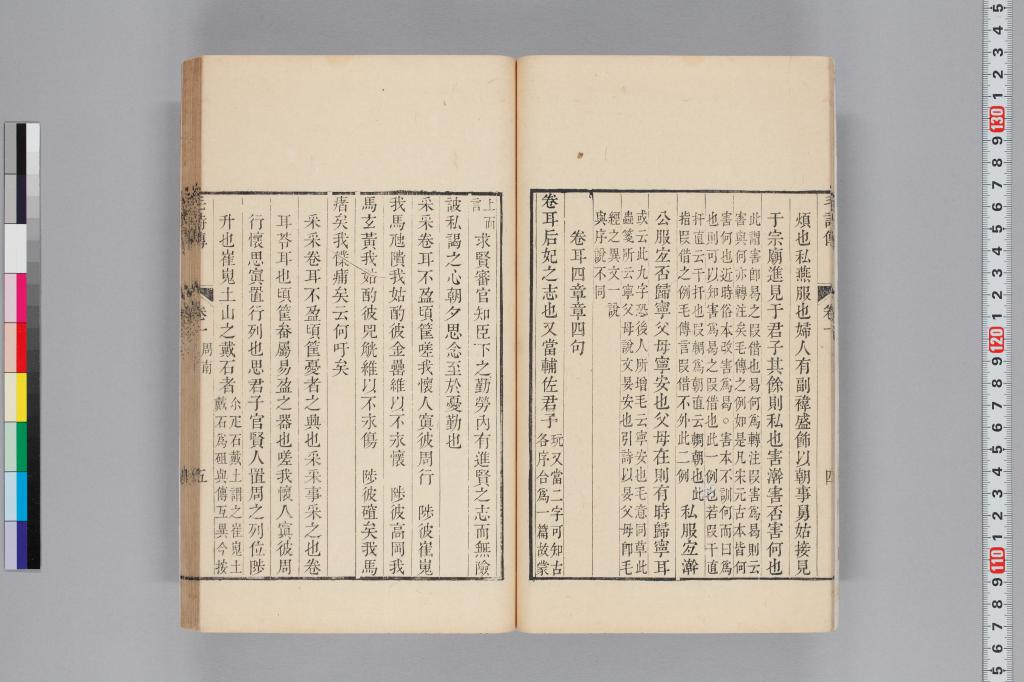 煩也私燕服也婦人有副褘盛飾以朝事舅姑接見
于宗廟進見于君子其餘則私也害澣害否害何也
此謂害卽曷之叚借也曷何爲轉注叚害爲曷則云
害與何亦轉注矣毛傳之例如是凡宋元古本皆何
害何也近時俗本改害爲曷。害本不訓何而曰爲
也則可以知害爲曷之叚借也此一例也若叚干直
扞直云干扞也叚輖爲朝直云輖朝也此
指叚借之例毛傳言叚借不外此二例
私服宐澣
公服宐否歸寧父母寧安也父母在則有時歸寧耳
或云此九字恐後人所增毛云寧安也毛意同草此
蟲箋所云寧父母說文晏安也引詩以晏父母卽毛
經之異文一說
與序說不同
卷耳四章章四句
卷耳后妃之志也又當輔佐君子
玩又當二字可知古
各序合爲一篇故蒙
上而
言
求賢審官知臣下之勤勞內有進賢之志而無險
詖私謁之心朝夕思念至於憂勤也
采采卷耳不盈頃筐嗟我懷人寘彼周行 陟彼崔嵬
我馬虺隤我姑酌彼金罍維以不永懷 陟彼高岡我
馬玄黃我姑酌彼兕觥維以不永傷 陟彼確矣我馬
瘏矣我僕痡矣云何吁矣
采采卷耳不盈頃筐憂者之興也采采事采之也卷
耳苓耳也頃筐畚屬易盈之器也嗟我懷人寘彼周
行懷思寘置行列也思君子官賢人置周之列位陟
升也崔嵬土山之戴石者
尒疋石戴土謂之崔嵬土
戴石爲砠與傳互異今按
毛詩傳 卷一 周南 五